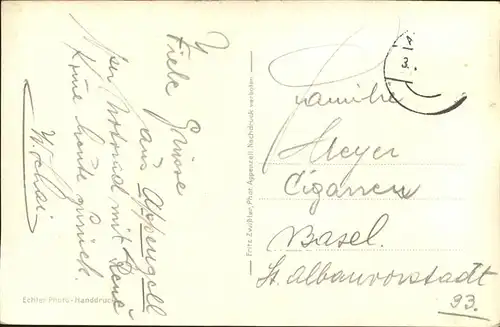 Viele Grüsse
aus Appenzell
per Motorad mit René
Komme heute zurück.
Familie
Meyer
Cigarren
Basel.
St. Albanvorstadt
93.
Fritz Zwahlen, Phot. Appenzell. Nachdruck verboten
Echter Photo-Handdruck
3.